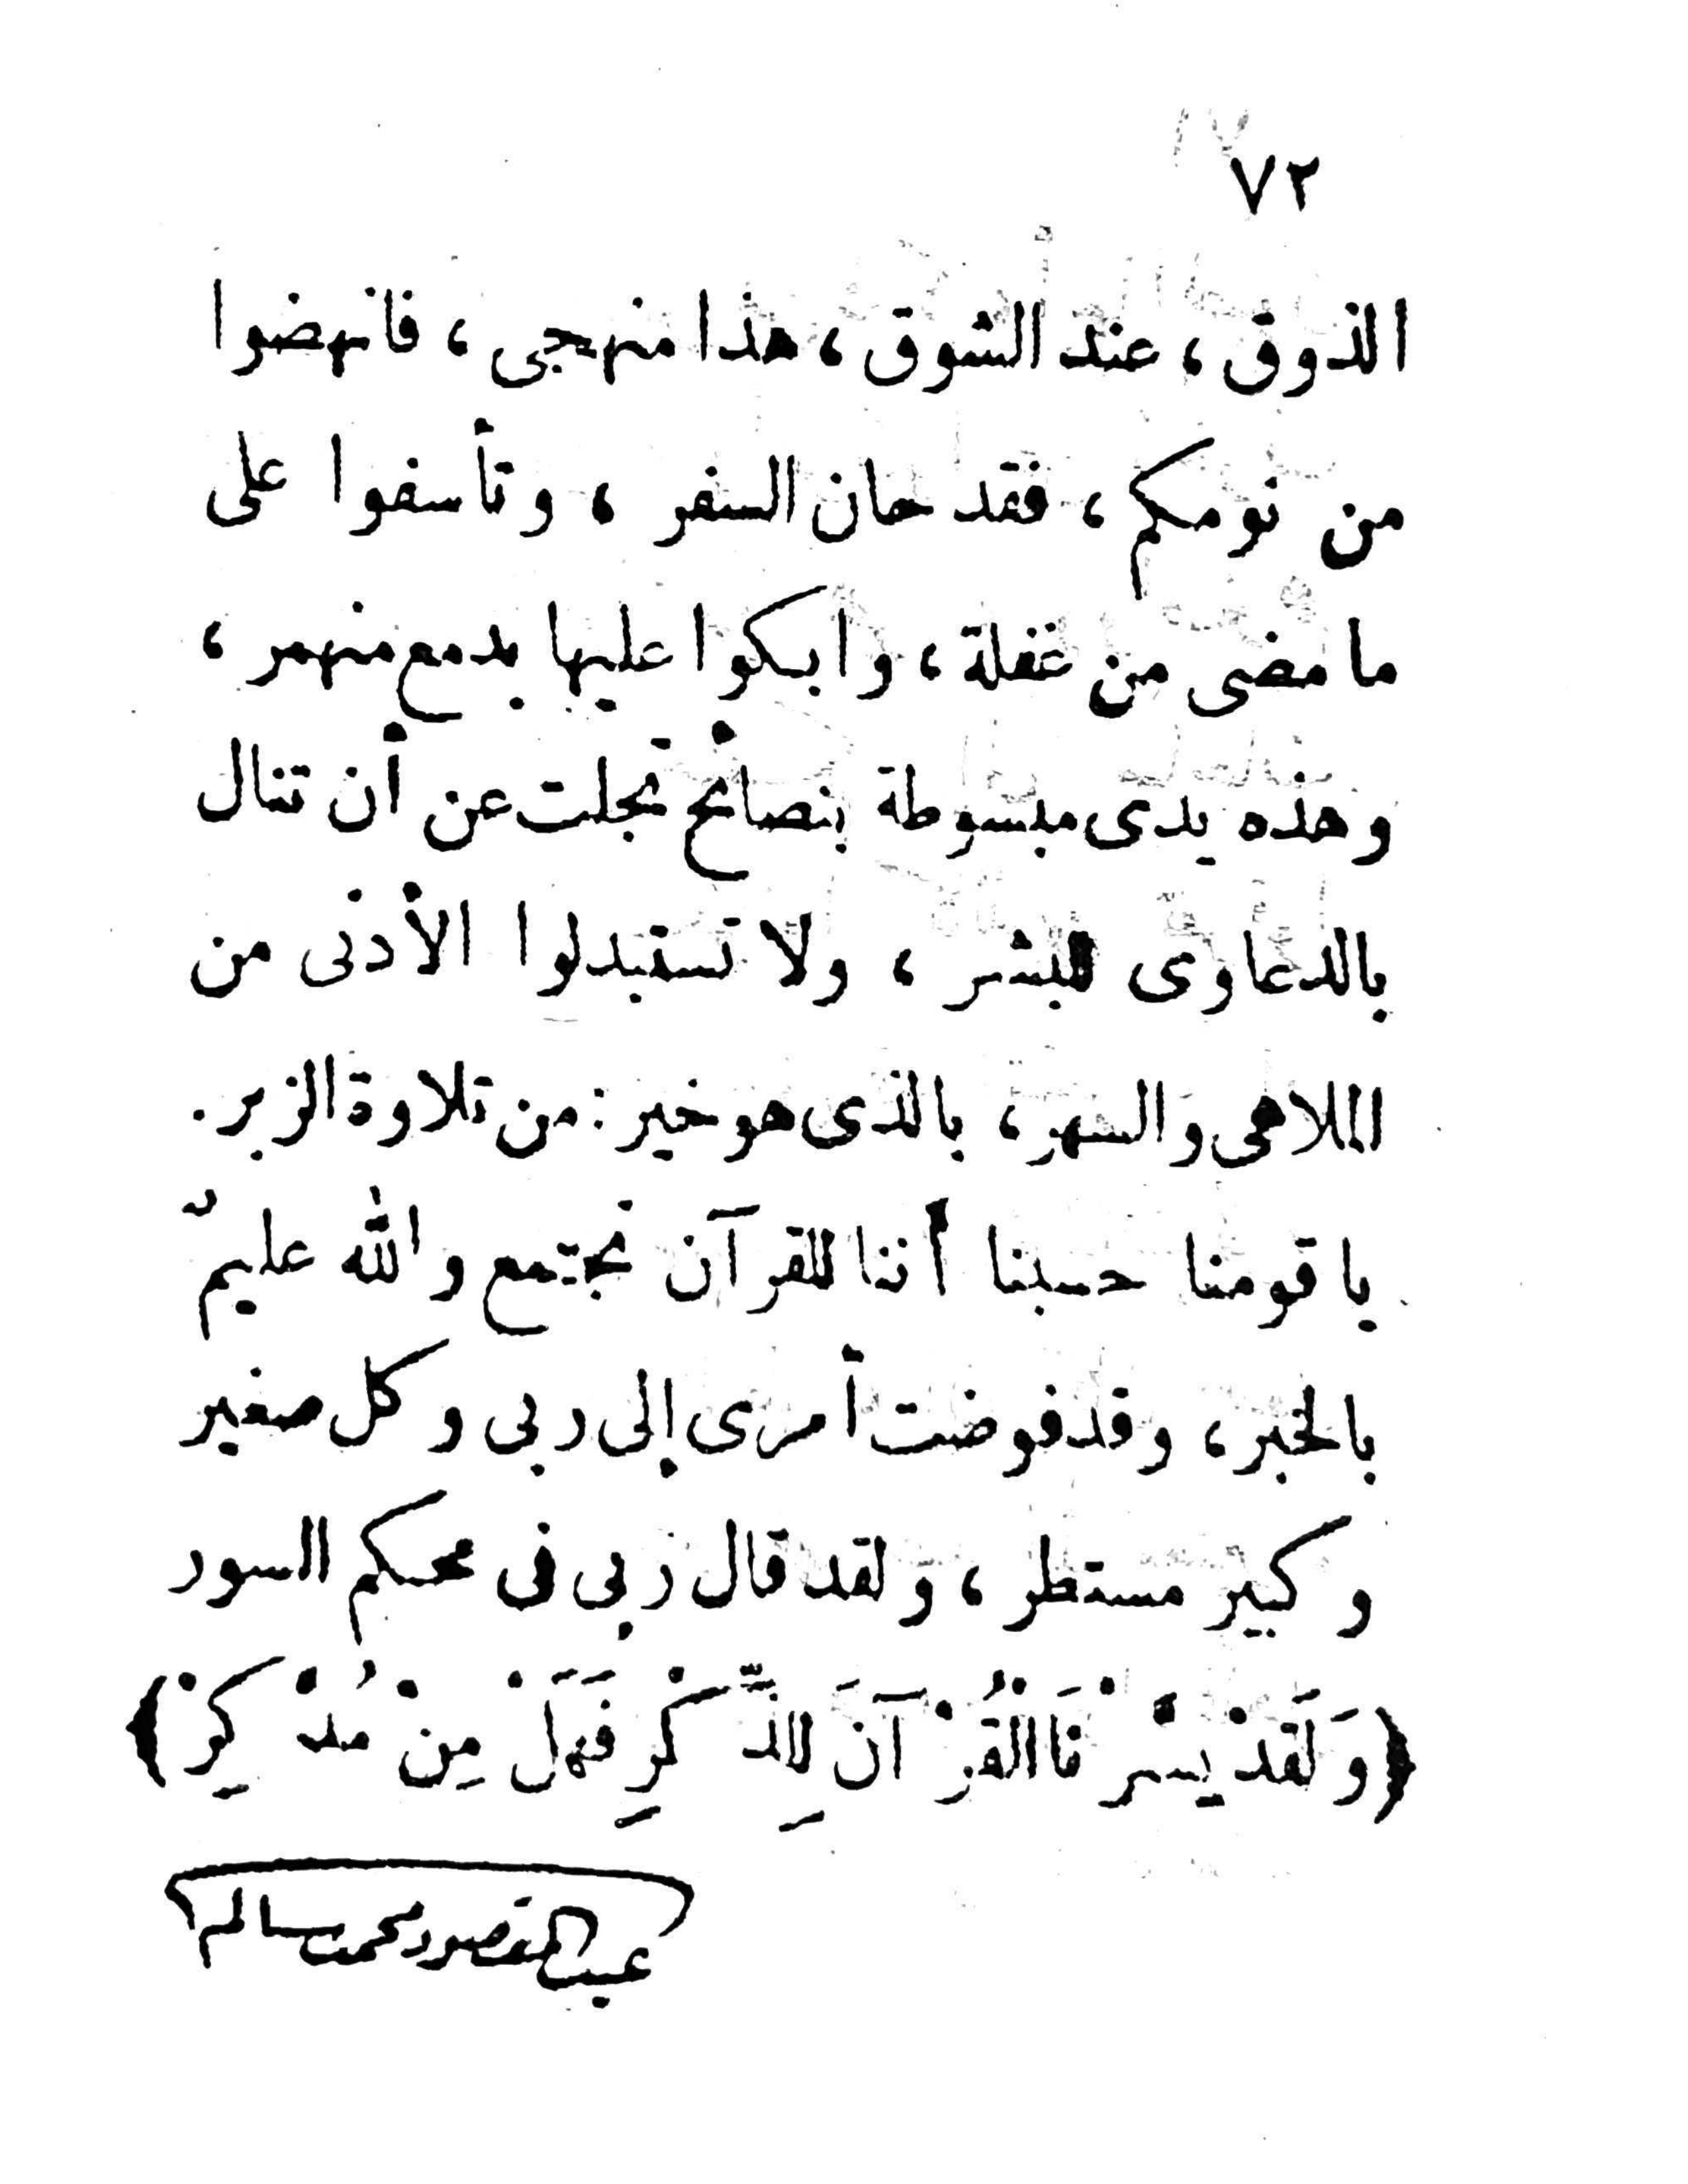 ٧٢
الذوق ، عند الشوق ، هذا منهجى ، فانهضوا
من نومكم ، فقد حان السفر ، وتأسفوا على
ما مضى من غفلة ، وابكوا عليها بدمع منهمر ،
وهذه يدى مبسوطة بنصائح تجلت عن أن تنال
بالدعاوى للبشر ، ولا تستبدلوا الأدنى من
الملاهى والسهر ، بالذى هو خير : من تلاوة الزبر .
يا قومنا حسبنا أننا للقرآن نجتمع والله عليمٌ
بالخبر ، وقد فوضت أمرى إلى ربى وكل صغير
وكبير مستطر ، ولقد قال ربى فى محكم السور
﴿وَلَقَدْ يَسَّرْنَا الْقُرْآنَ لِلذِّكْرِ فَهَلْ مِنْ مُدَّكِرْ﴾
عبد المقصود محمد سالم